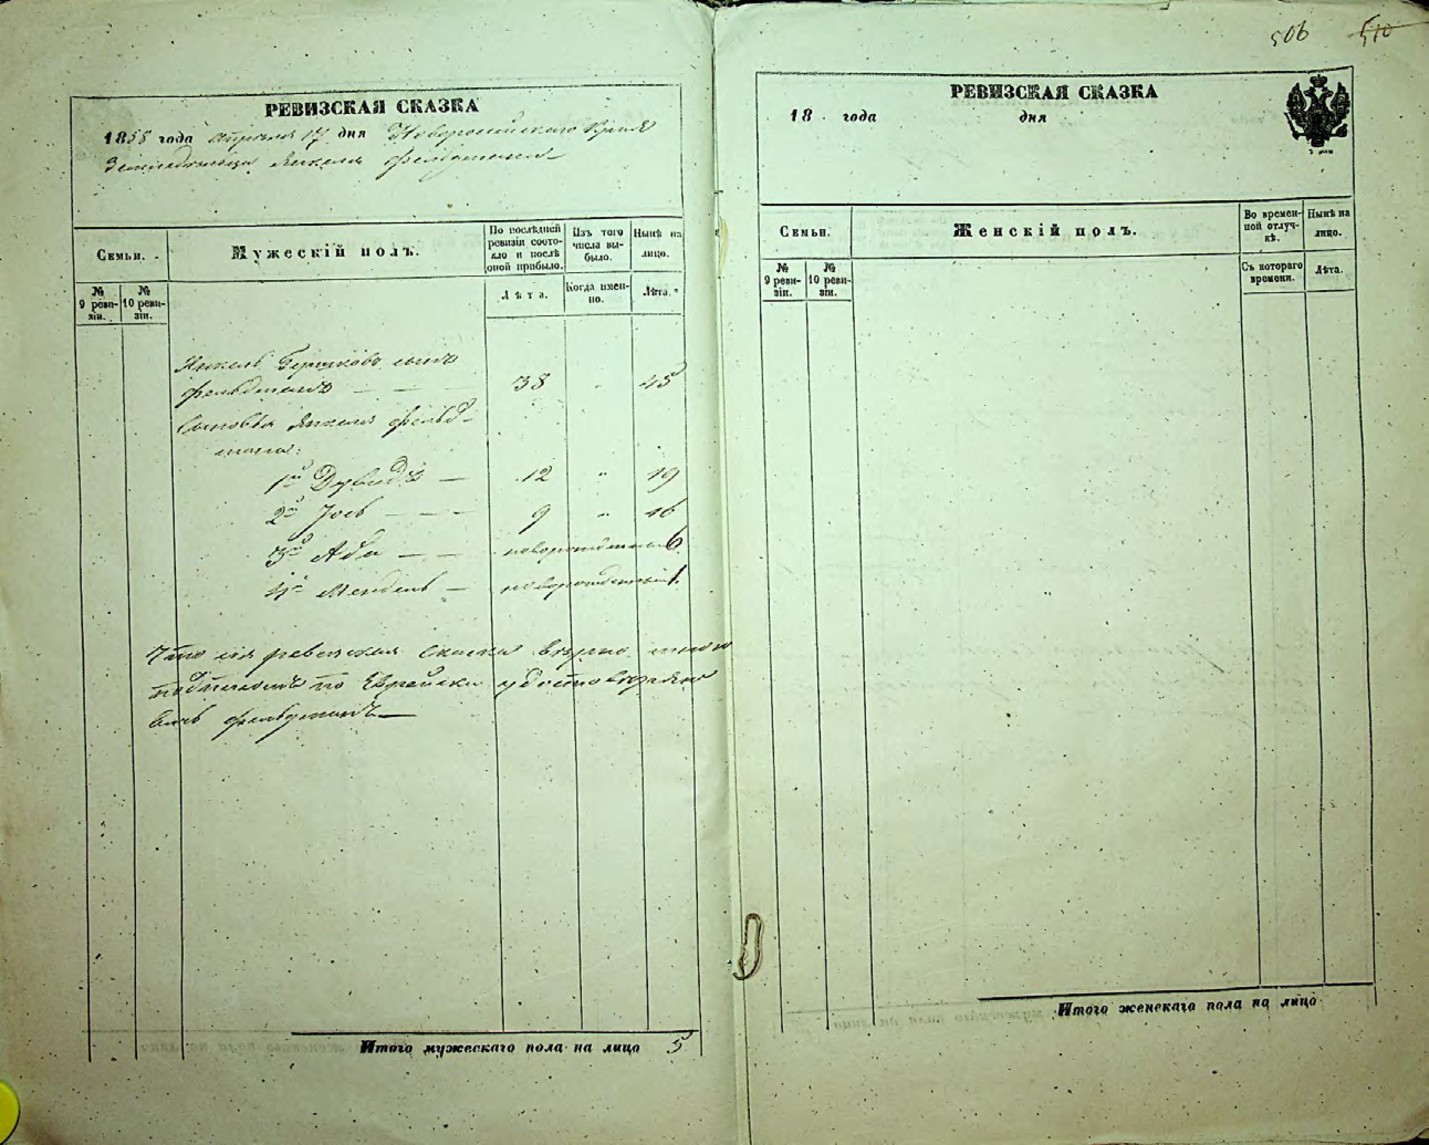 506 510
РЕВИЗСКАЯ СКАЗКА
1858 года Апреля 17 дня Новороссійскаго Края
Янкеля Фельдмана
Семьи.
Мужескій полъ.
По послѣдней ревизіи состояло и послѣ оной прибыло.
Изъ того числа выбыло.
Нынѣ на лицо.
№ 9 ревизіи.
№ 10 ревизіи.
Лѣта.
Когда именно.
Лѣта.
Янкель Берковъ сынъ
Фельдманъ — — 38 „ 45
Сыновья Янкеля Фельд-
мана:
1й Дувидъ — 12 „ 19
2й Іось — — — 9 „ 16
3й Аба — — новорожденный 6
4й Мендель — новорожденный 1
Что сія ревизская сказка вѣрна, въ томъ
подписомъ по Еврейски удостовѣряю
Фельдманъ —
Итого мужескаго пола на лицо 5
РЕВИЗСКАЯ СКАЗКА
18 года дня
Семьи.
Женскій полъ.
Во временной отлучкѣ.
Нынѣ на лицо.
№ 9 ревизіи.
№ 10 ревизіи.
Съ котораго времени.
Лѣта.
Итого женскаго пола на лицо